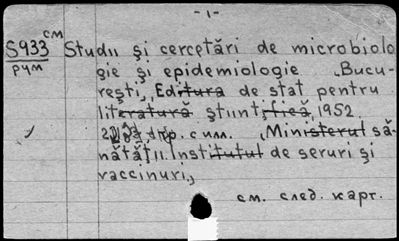 - 1 -
см
S933 Studii şi cercetări de microbiolo
рум gie şi epidemiologie. Bucu-
reşti, Editura de stat pentru
literatură ştiinţifică, 1952.
стр. с илл. (Ministerul să-
nătăţii. Institutul de seruri şi
vaccinuri)
см. след. карт.